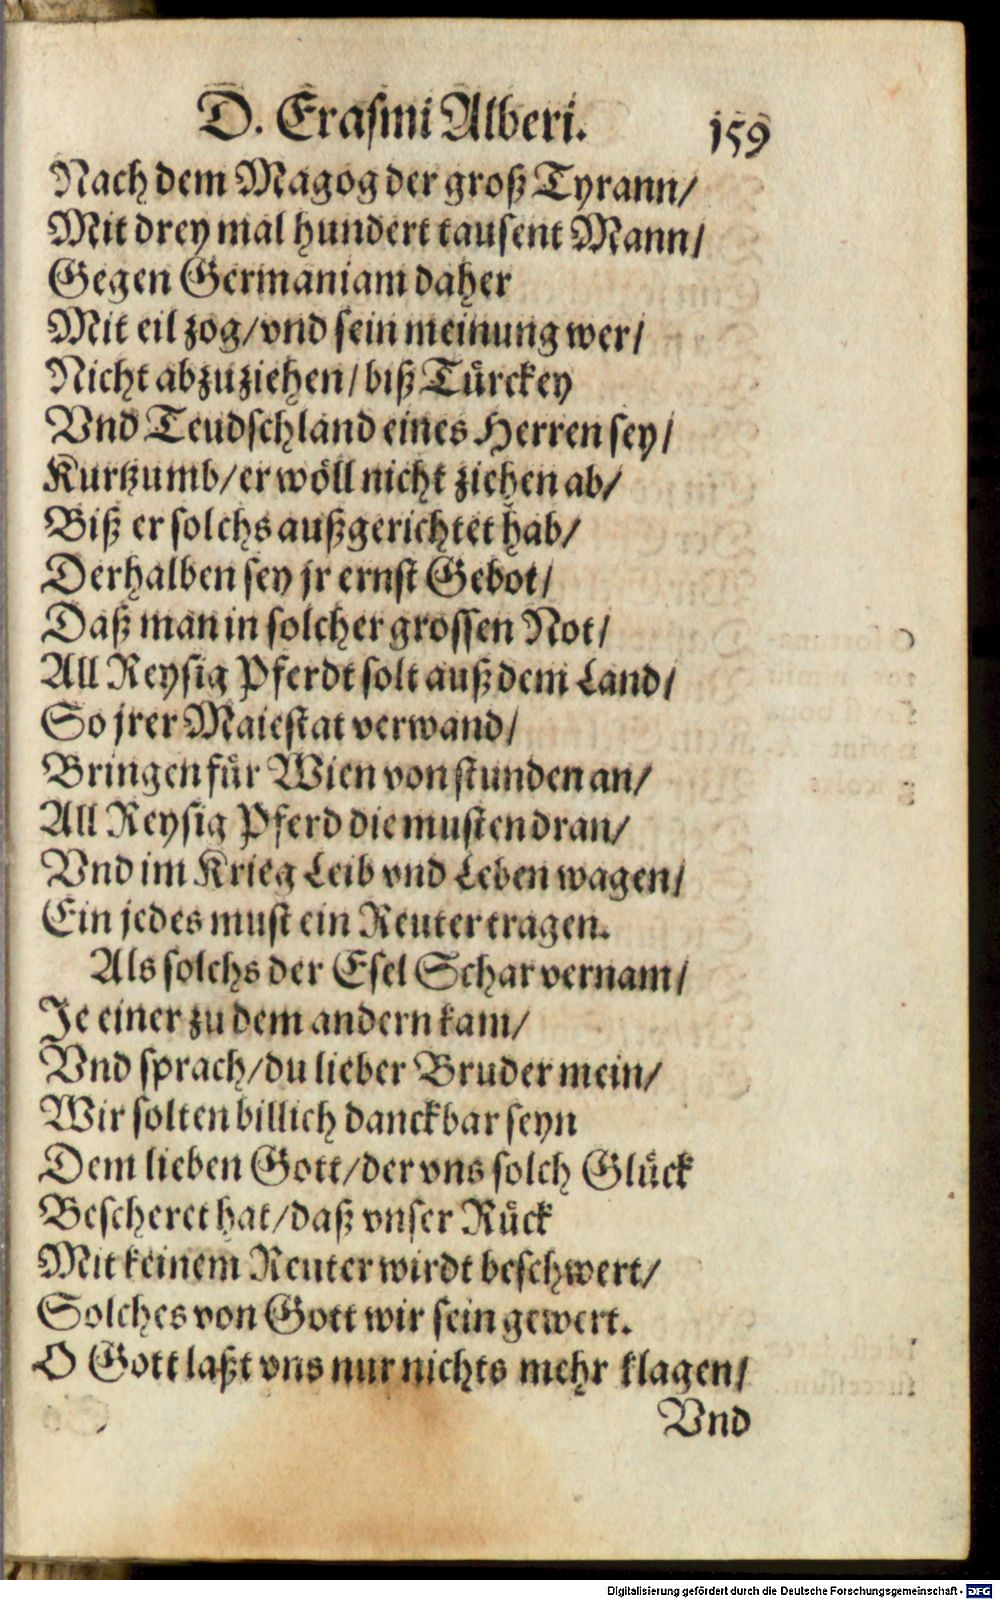 D. Erasmi Alberi. 159
Nach dem Magog der groß Tyrann/
Mit drey mal hundert tausent Mann/
Gegen Germaniam daher
Mit eil zog/vnd sein meinung wer/
Nicht abzuziehen/biß Türckey
Vnd Teudschland eines Herren sey/
Kurtzumb/er wöll nicht ziehen ab/
Biß er solchs außgerichtet hab/
Derhalben sey jr ernst Gebot/
Daß man in solcher grossen Not/
All Reysig Pferdt solt auß dem Land/
So jrer Maiestat verwand/
Bringen für Wien von stunden an/
All Reysig Pferd die musten dran/
Vnd im Krieg Leib vnd Leben wagen/
Ein jedes must ein Reuter tragen.
Als solchs der Esel Schar vernam/
Je einer zu dem andern kam/
Vnd sprach/du lieber Bruder mein/
Wir solten billich danckbar seyn
Dem lieben Gott/der vns solch Glück
Bescheret hat/daß vnser Rück
Mit keinem Reuter wirdt beschwert/
Solches von Gott wir sein gewert.
O Gott laßt vns nur nichts mehr klagen/
Vnd
Digitalisierung gefördert durch die Deutsche Forschungsgemeinschaft - DFG